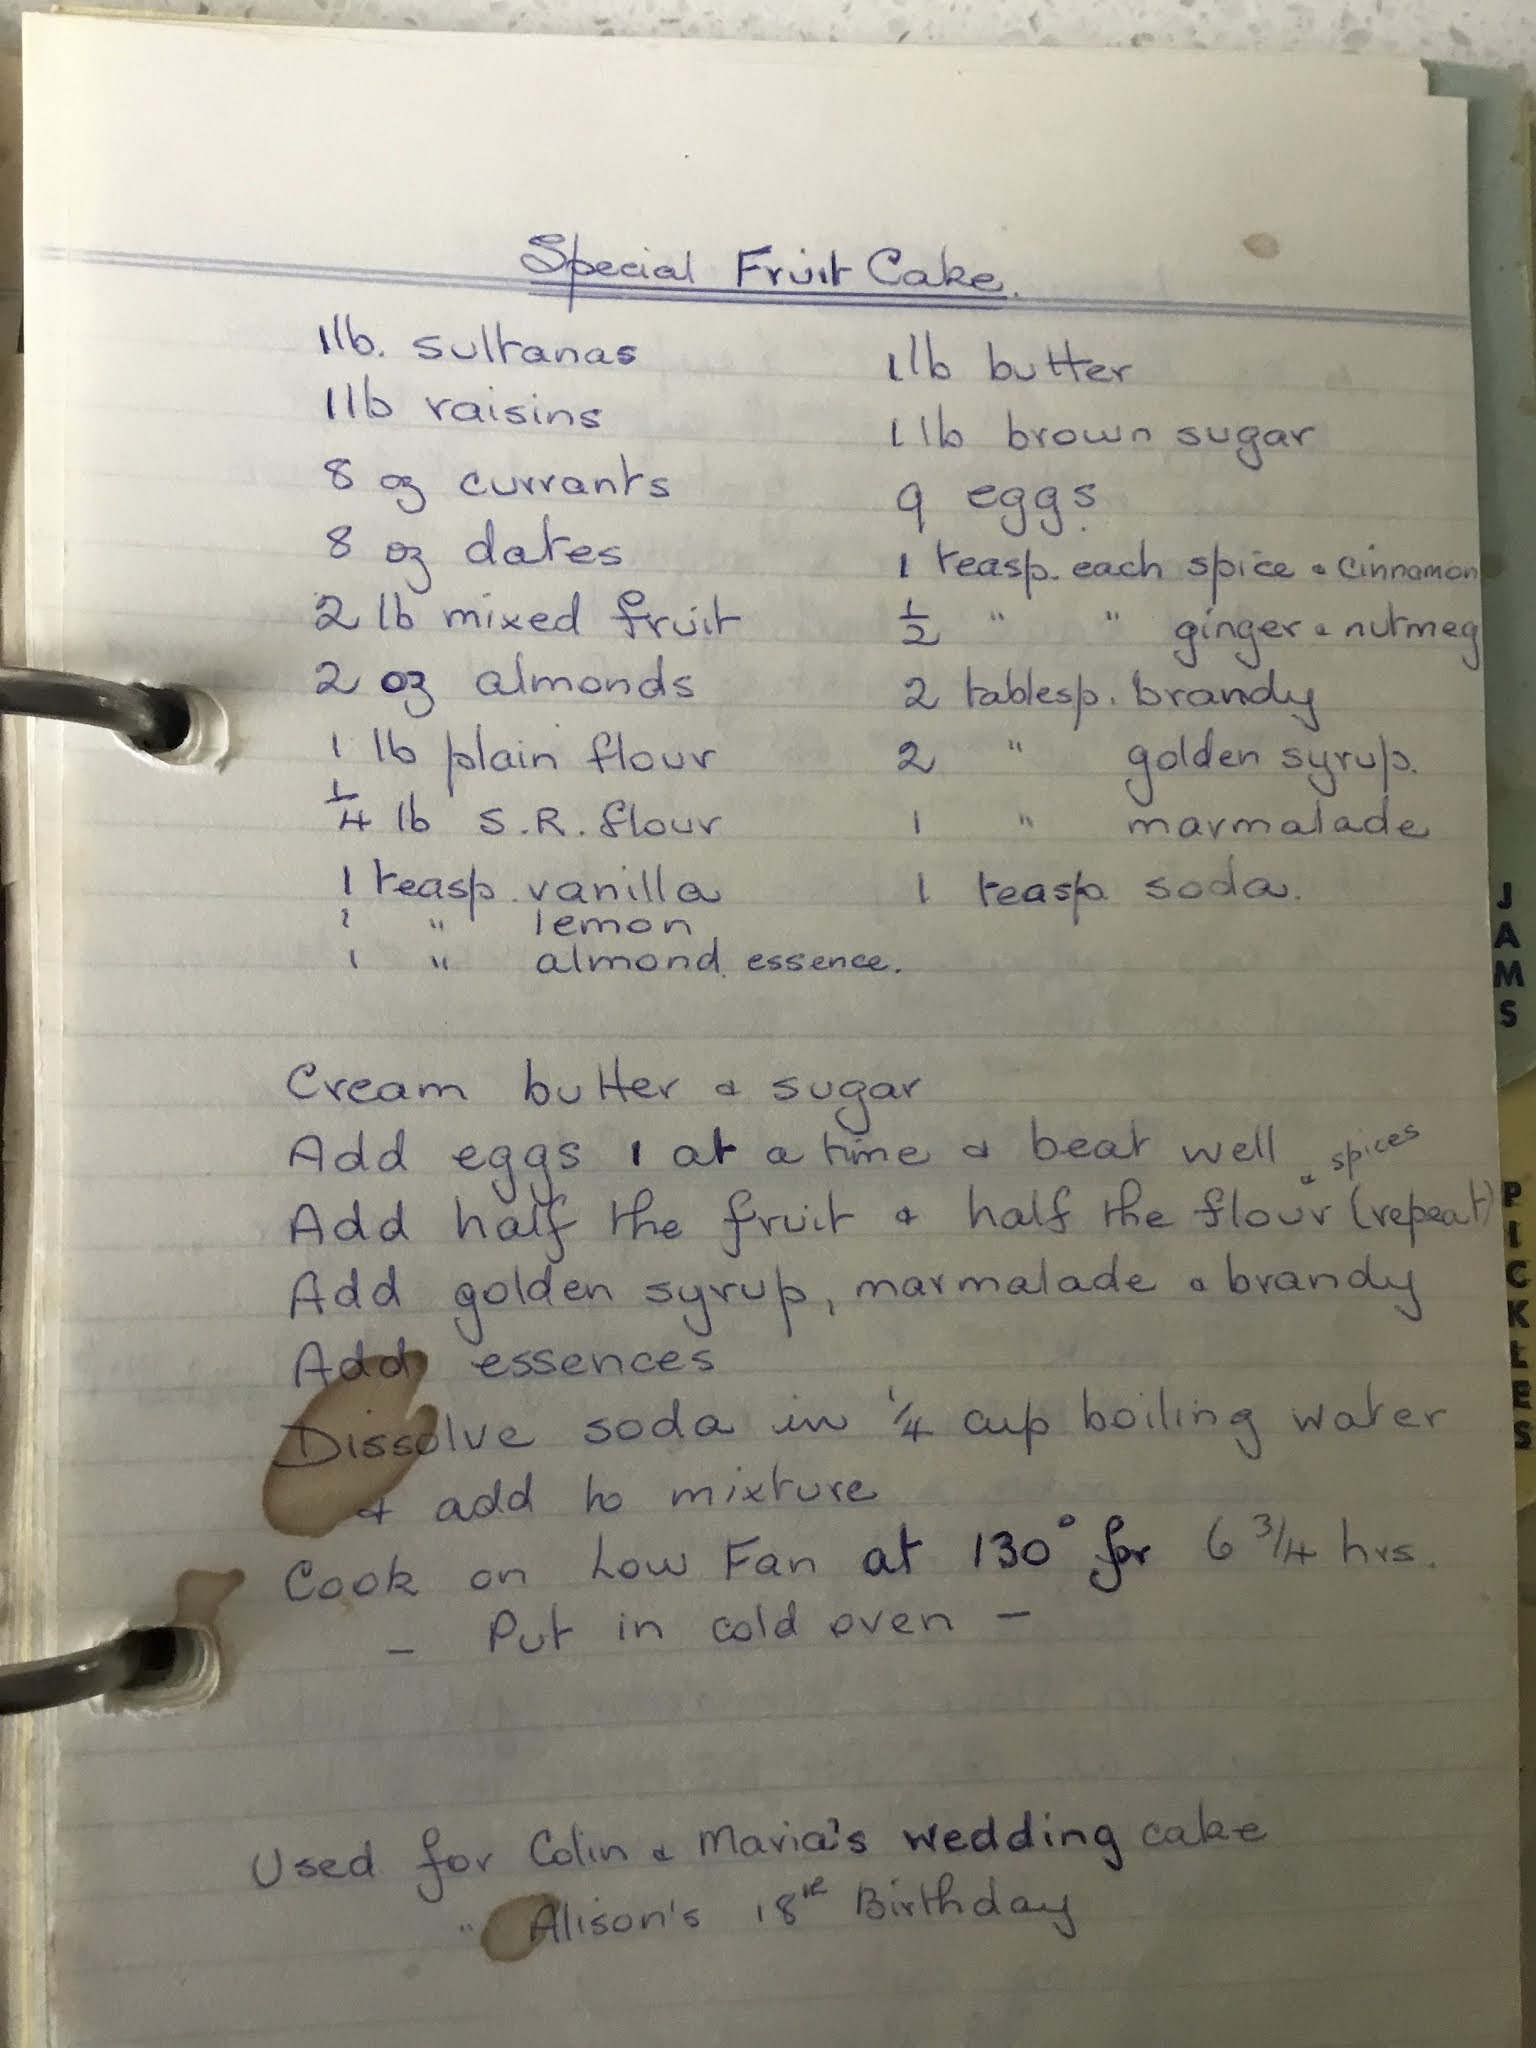 Special Fruit Cake.
1lb. sultanas
1lb raisins
8 oz currants
8 oz dates
2 lb mixed fruit
2 oz almonds
1 lb plain flour
1/4 lb S.R. flour
1 teasp. vanilla
1 " lemon
1 " almond essence.
1lb butter
1 lb brown sugar
9 eggs
1 teasp. each spice & cinnamon
1/2 " " ginger & nutmeg
2 tablesp. brandy
2 " golden syrup.
1 " marmalade
1 teasp soda.
Cream butter & sugar
Add eggs 1 at a time & beat well
Add half the fruit & half the flour & spices (repeat)
Add golden syrup, marmalade & brandy
Add essences
Dissolve soda in 1/4 cup boiling water
& add to mixture
Cook on Low Fan at 130° for 6 3/4 hrs.
- Put in cold oven -
Used for Colin & Maria's wedding cake
" Alison's 18th Birthday
JAMS
PICKLES